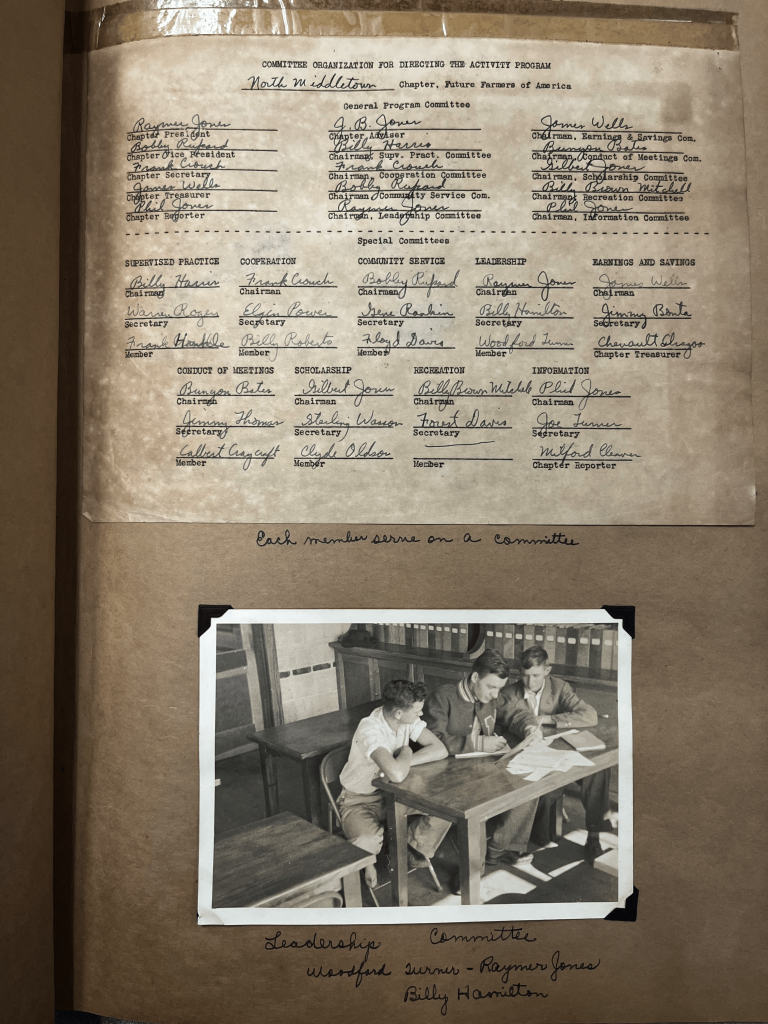 COMMITTEE ORGANIZATION FOR DIRECTING THE ACTIVITY PROGRAM
North Middletown Chapter, Future Farmers of America
General Program Committee
Raymer Jones J. B. Jones James Wells
Chapter President Chapter Adviser Chairman, Earnings & Savings Com.
Bobby Rupard Billy Harris Bunyon Bates
Chapter Vice President Chairman, Supv. Pract. Committee Chairman, Conduct of Meetings Com.
Frank Crouch Frank Crouch Gilbert Jones
Chapter Secretary Chairman, Cooperation Committee Chairman, Scholarship Committee
James Wells Bobby Rupard Billy Brown Mitchell
Chapter Treasurer Chairman, Community Service Com. Chairman, Recreation Committee
Phil Jones Raymer Jones Phil Jones
Chapter Reporter Chairman, Leadership Committee Chairman, Information Committee
Special Committees
SUPERVISED PRACTICE COOPERATION COMMUNITY SERVICE LEADERSHIP EARNINGS AND SAVINGS
Billy Harris Frank Crouch Bobby Rupard Raymer Jones James Wells
Chairman Chairman Chairman Chairman Chairman
Warren Rogers Elgin Power Gene Rankin Billy Hamilton Jimmy
Secretary Secretary Secretary Secretary Secretary
Frank Billy Roberts Floyd Davis Woodford Turner Chenault
Member Member Member Member Chapter Treasurer
CONDUCT OF MEETINGS SCHOLARSHIP RECREATION INFORMATION
Bunyon Bates Gilbert Jones Billy Brown Mitchell Phil Jones
Chairman Chairman Chairman Chairman
Jimmy Thomas Sterling Wasson Forest Davis Joe Turner
Secretary Secretary Secretary Secretary
Calbert Craycraft Clyde Oldson Milford Cleaver
Member Member Member Chapter Reporter
Each member serve on a committee
Leadership Committee
Woodford Turner - Raymer Jones
Billy Hamilton